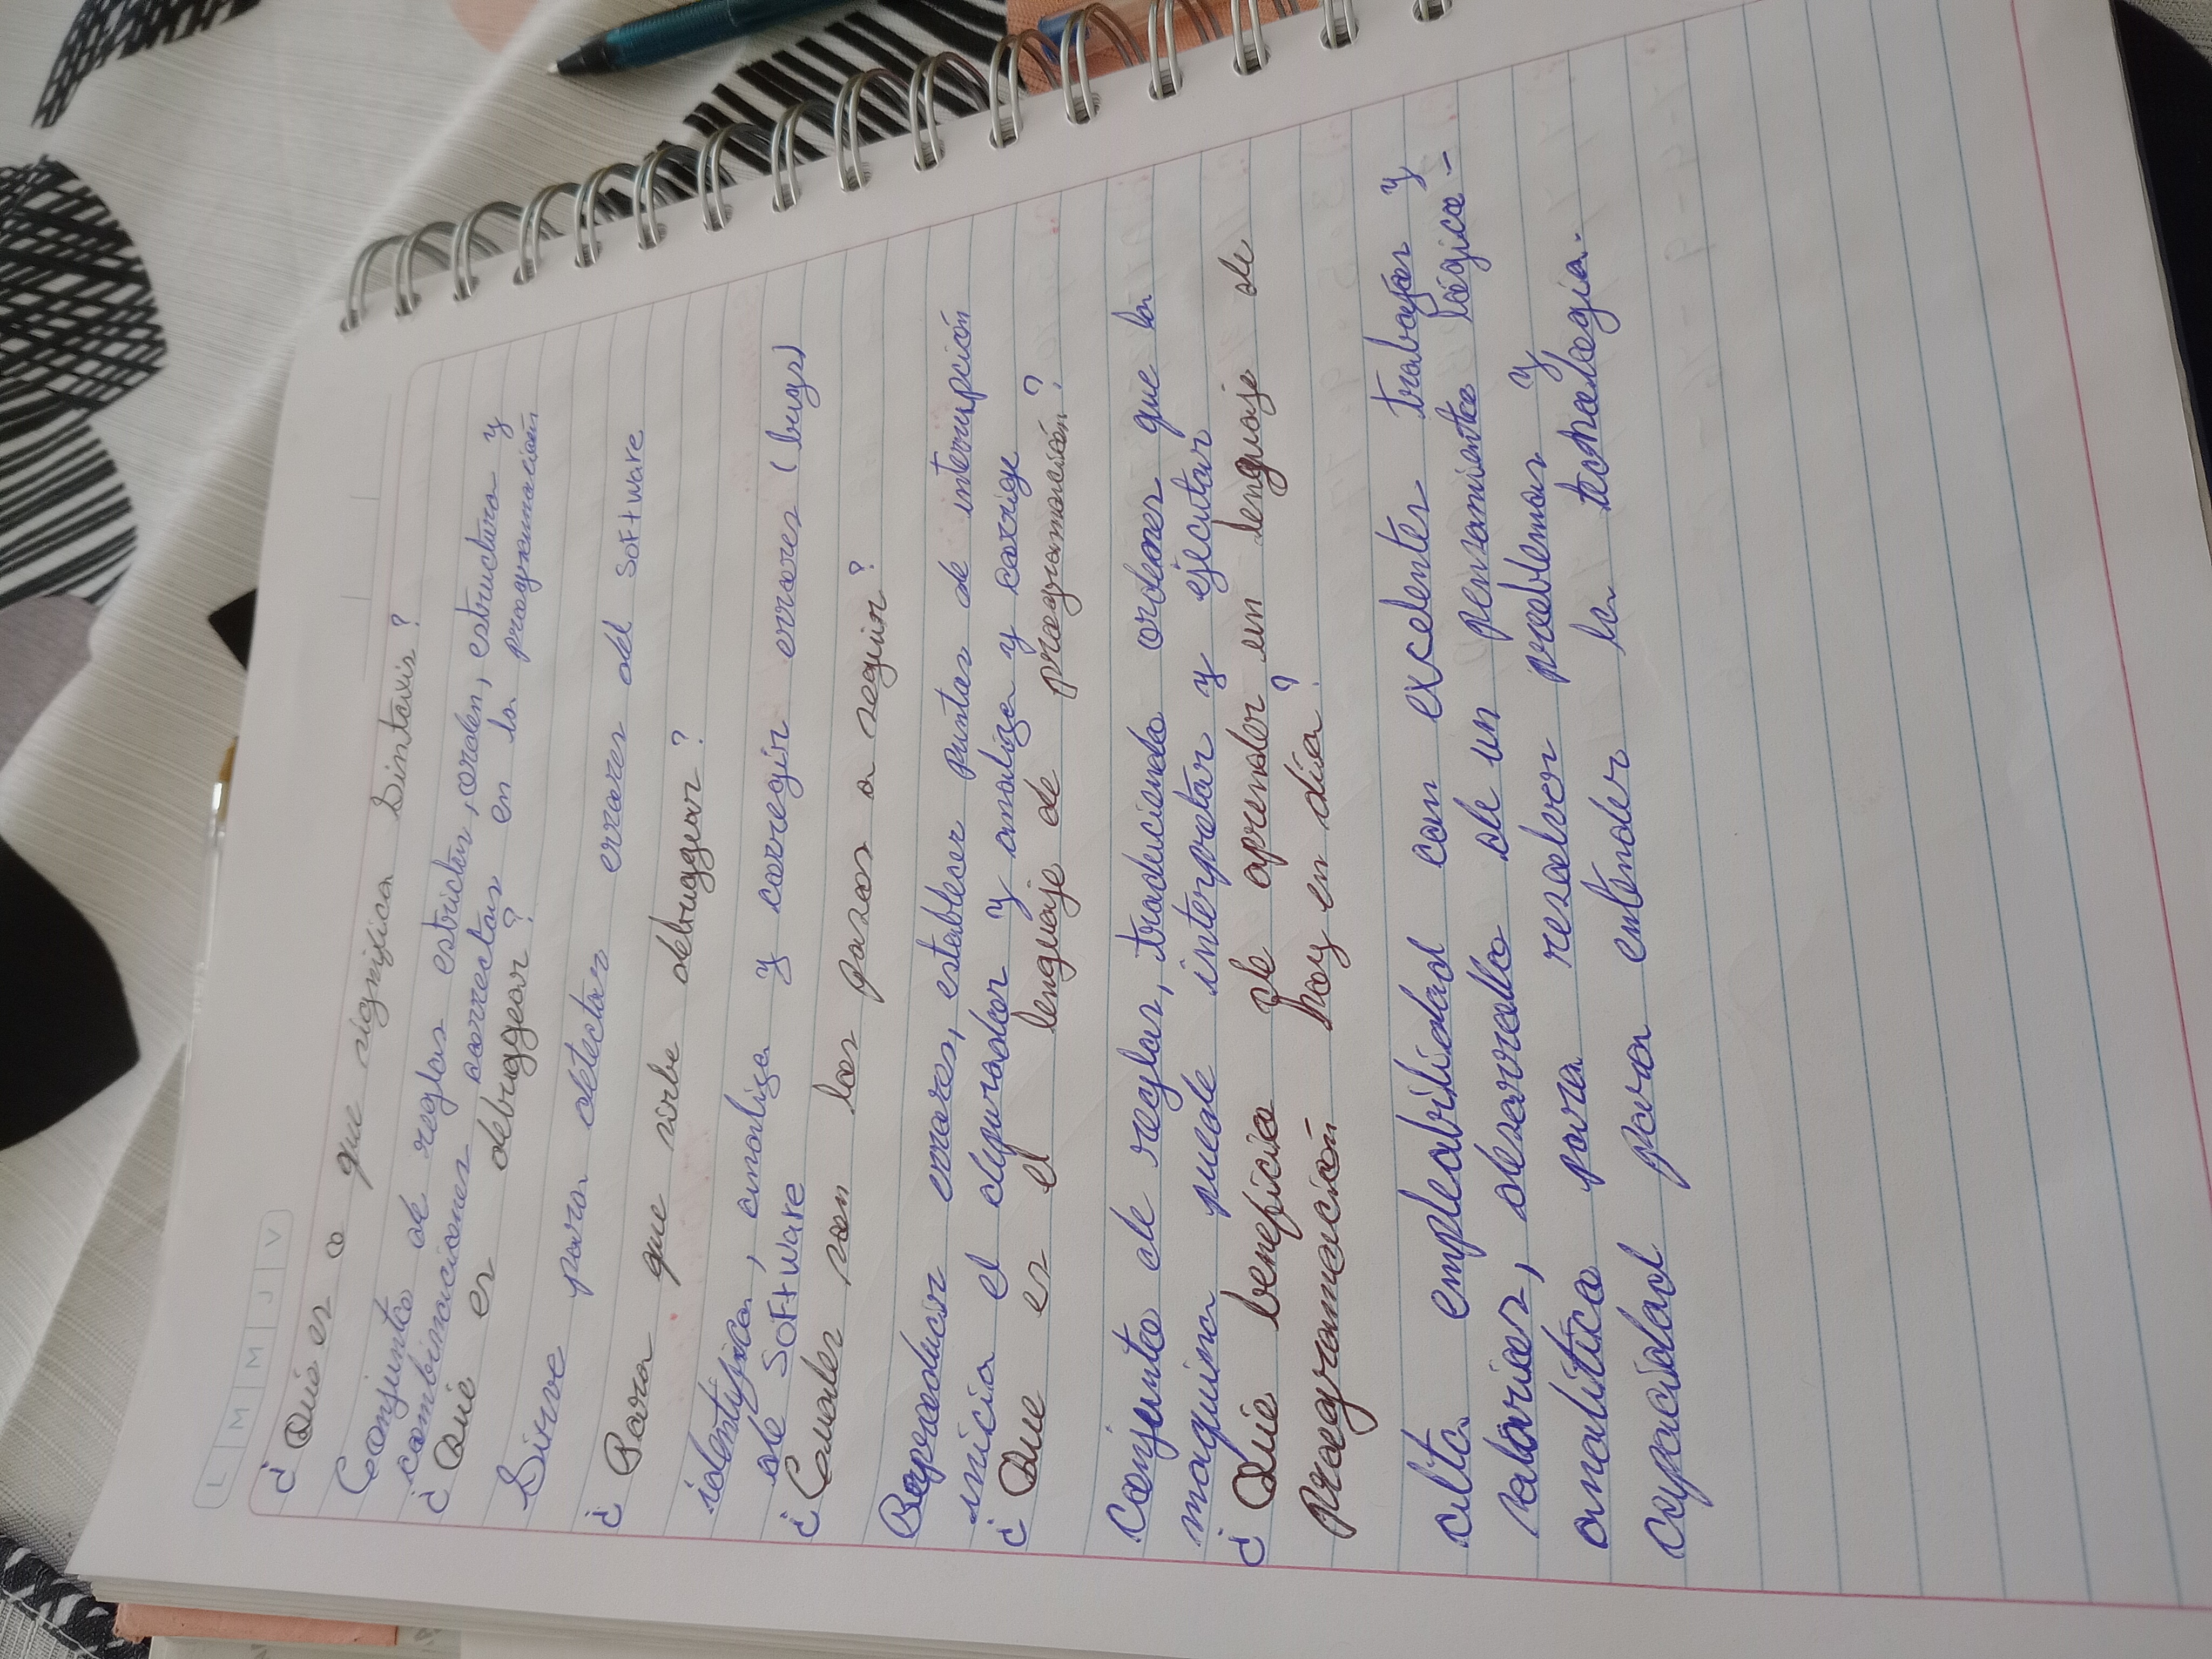 L M M J V
¿ Qué es o que significa Sintaxis?
Conjunto de reglas estrictas, orden, estructura y
combinaciones correctas en la programación
¿ Qué es debruggear?
Sirve para detectar errores del software
¿ Para que sirbe debruggear?
identifica, analiza y corregir errores (bugs)
de software
¿ Cuales son los pasos a seguir?
Reproducir errores, establecer puntos de interrupción
inicia el depurador y analiza y corrige
¿ Que es el lenguaje de programación?
Conjunto de reglas, traduciendo ordenes que la
maquina puede interpretar y ejecutar
¿ Qué beneficio de aprender un lenguaje de
programación hay en día?
alta empleabilidad con excelentes trabajos y
salarios, desarrollo de un pensamiento lógico-
analítico para resolver problemas y
capacidad para entender la technología.